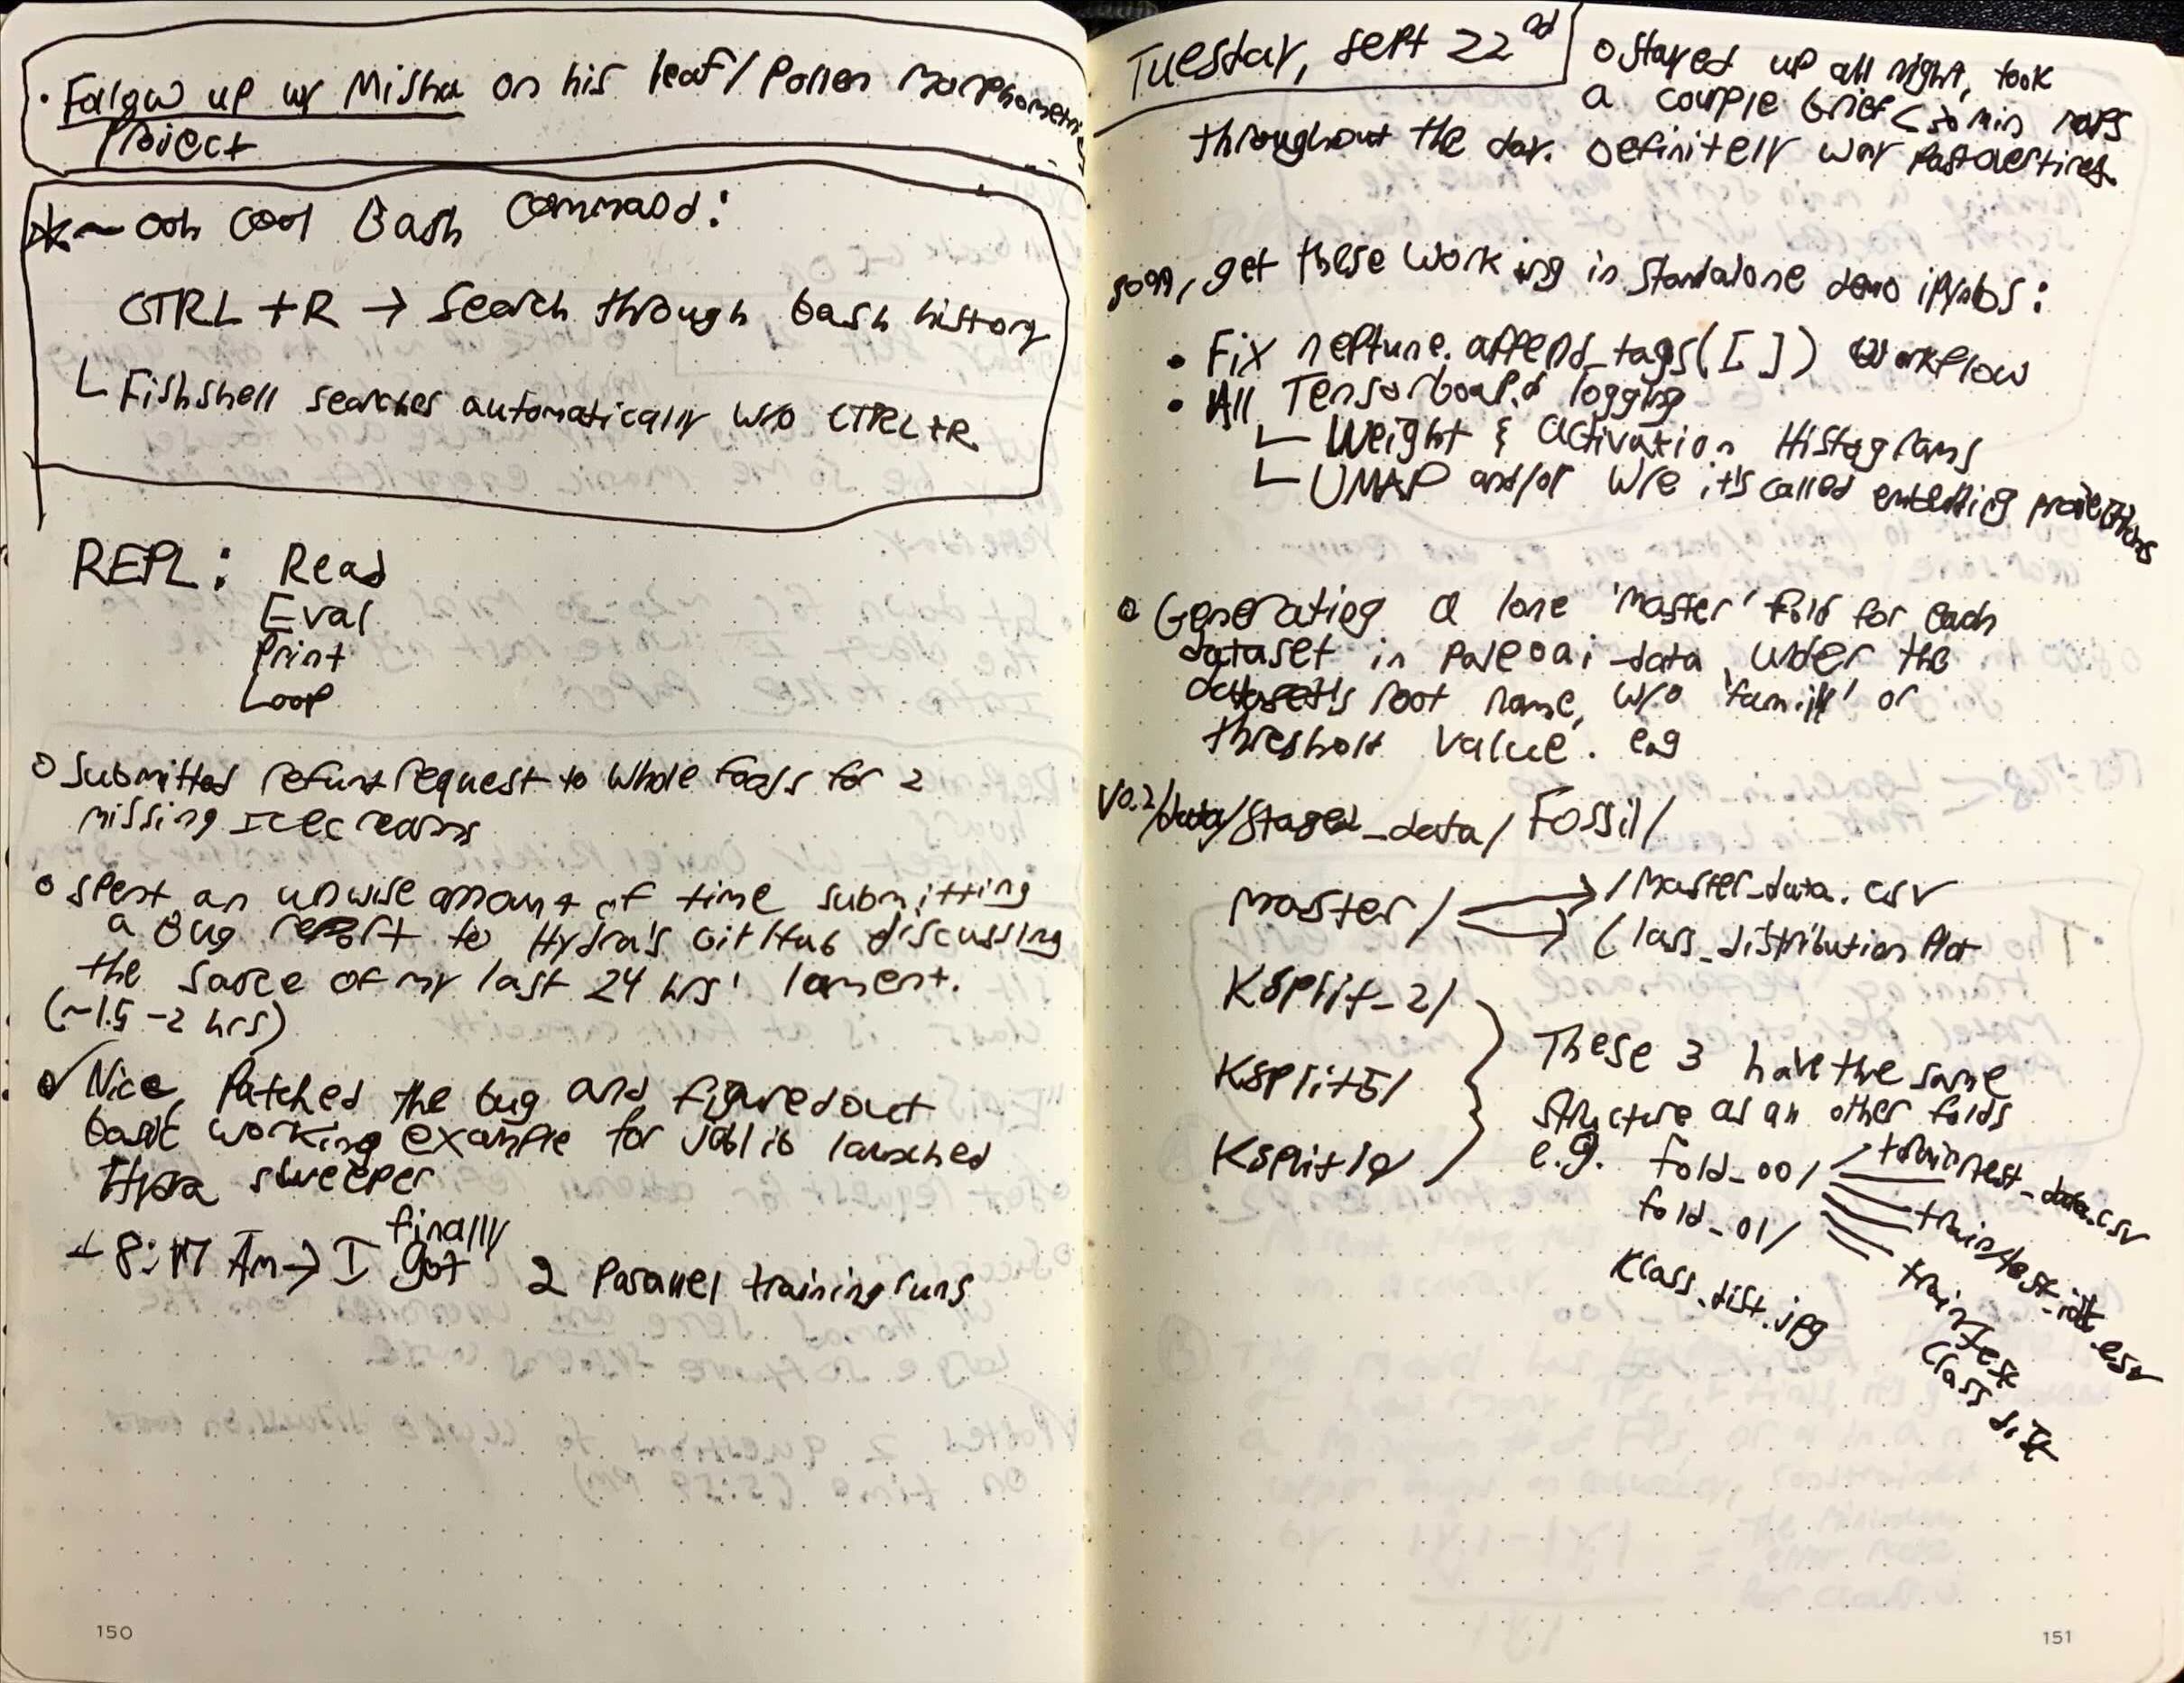 · Follow up w/ Misha on his leaf/Pollen Morphometrics
Project
* ~ Ooh cool Bash Command:
CTRL + R → Search through bash history
└ Fishshell searches automatically w/o CTRL+R
REPL: Read
Eval
Print
Loop
o Submitted refund request to Whole Foods for 2
missing Ice creams
o Spent an unwise amount of time submitting
a Bug report to Hydra's GitHub discussing
the source of my last 24 hrs' lament.
(~1.5-2 hrs)
✓ Nice, Patched the bug and figured out
basic working example for Joblib launched
Hydra sweeper
finally
AM → I got 2 Parallel training runs
150
Tuesday, Sept 22nd
o Stayed up all night, took
a couple brief < 30 min naps
throughout the day. Definitely way past overtired.
soon, get these working in standalone demo ipynbs:
• Fix neptune.append_tags([ ]) workflow
• All Tensorboard logging
└ Weight & Activation Histograms
└ UMAP and/or w/e it's called embedding projections
o Generating a lone 'master' fold for each
dataset in paleoai-data under the
dataset's root name, w/o 'family' or
threshold value. e.g
V0.2/data/staged_data/Fossil/
master/ → /Master_data.csv
→ Class_distribution Plot
Ksplit_2/
Ksplit5/
Ksplit10/
These 3 have the same
structure as all other folds
e.g. fold_00/
fold_01/
Klass_dist.jpg
train/test_data.csv
train/test_idx.csv
train/test
class dist
151